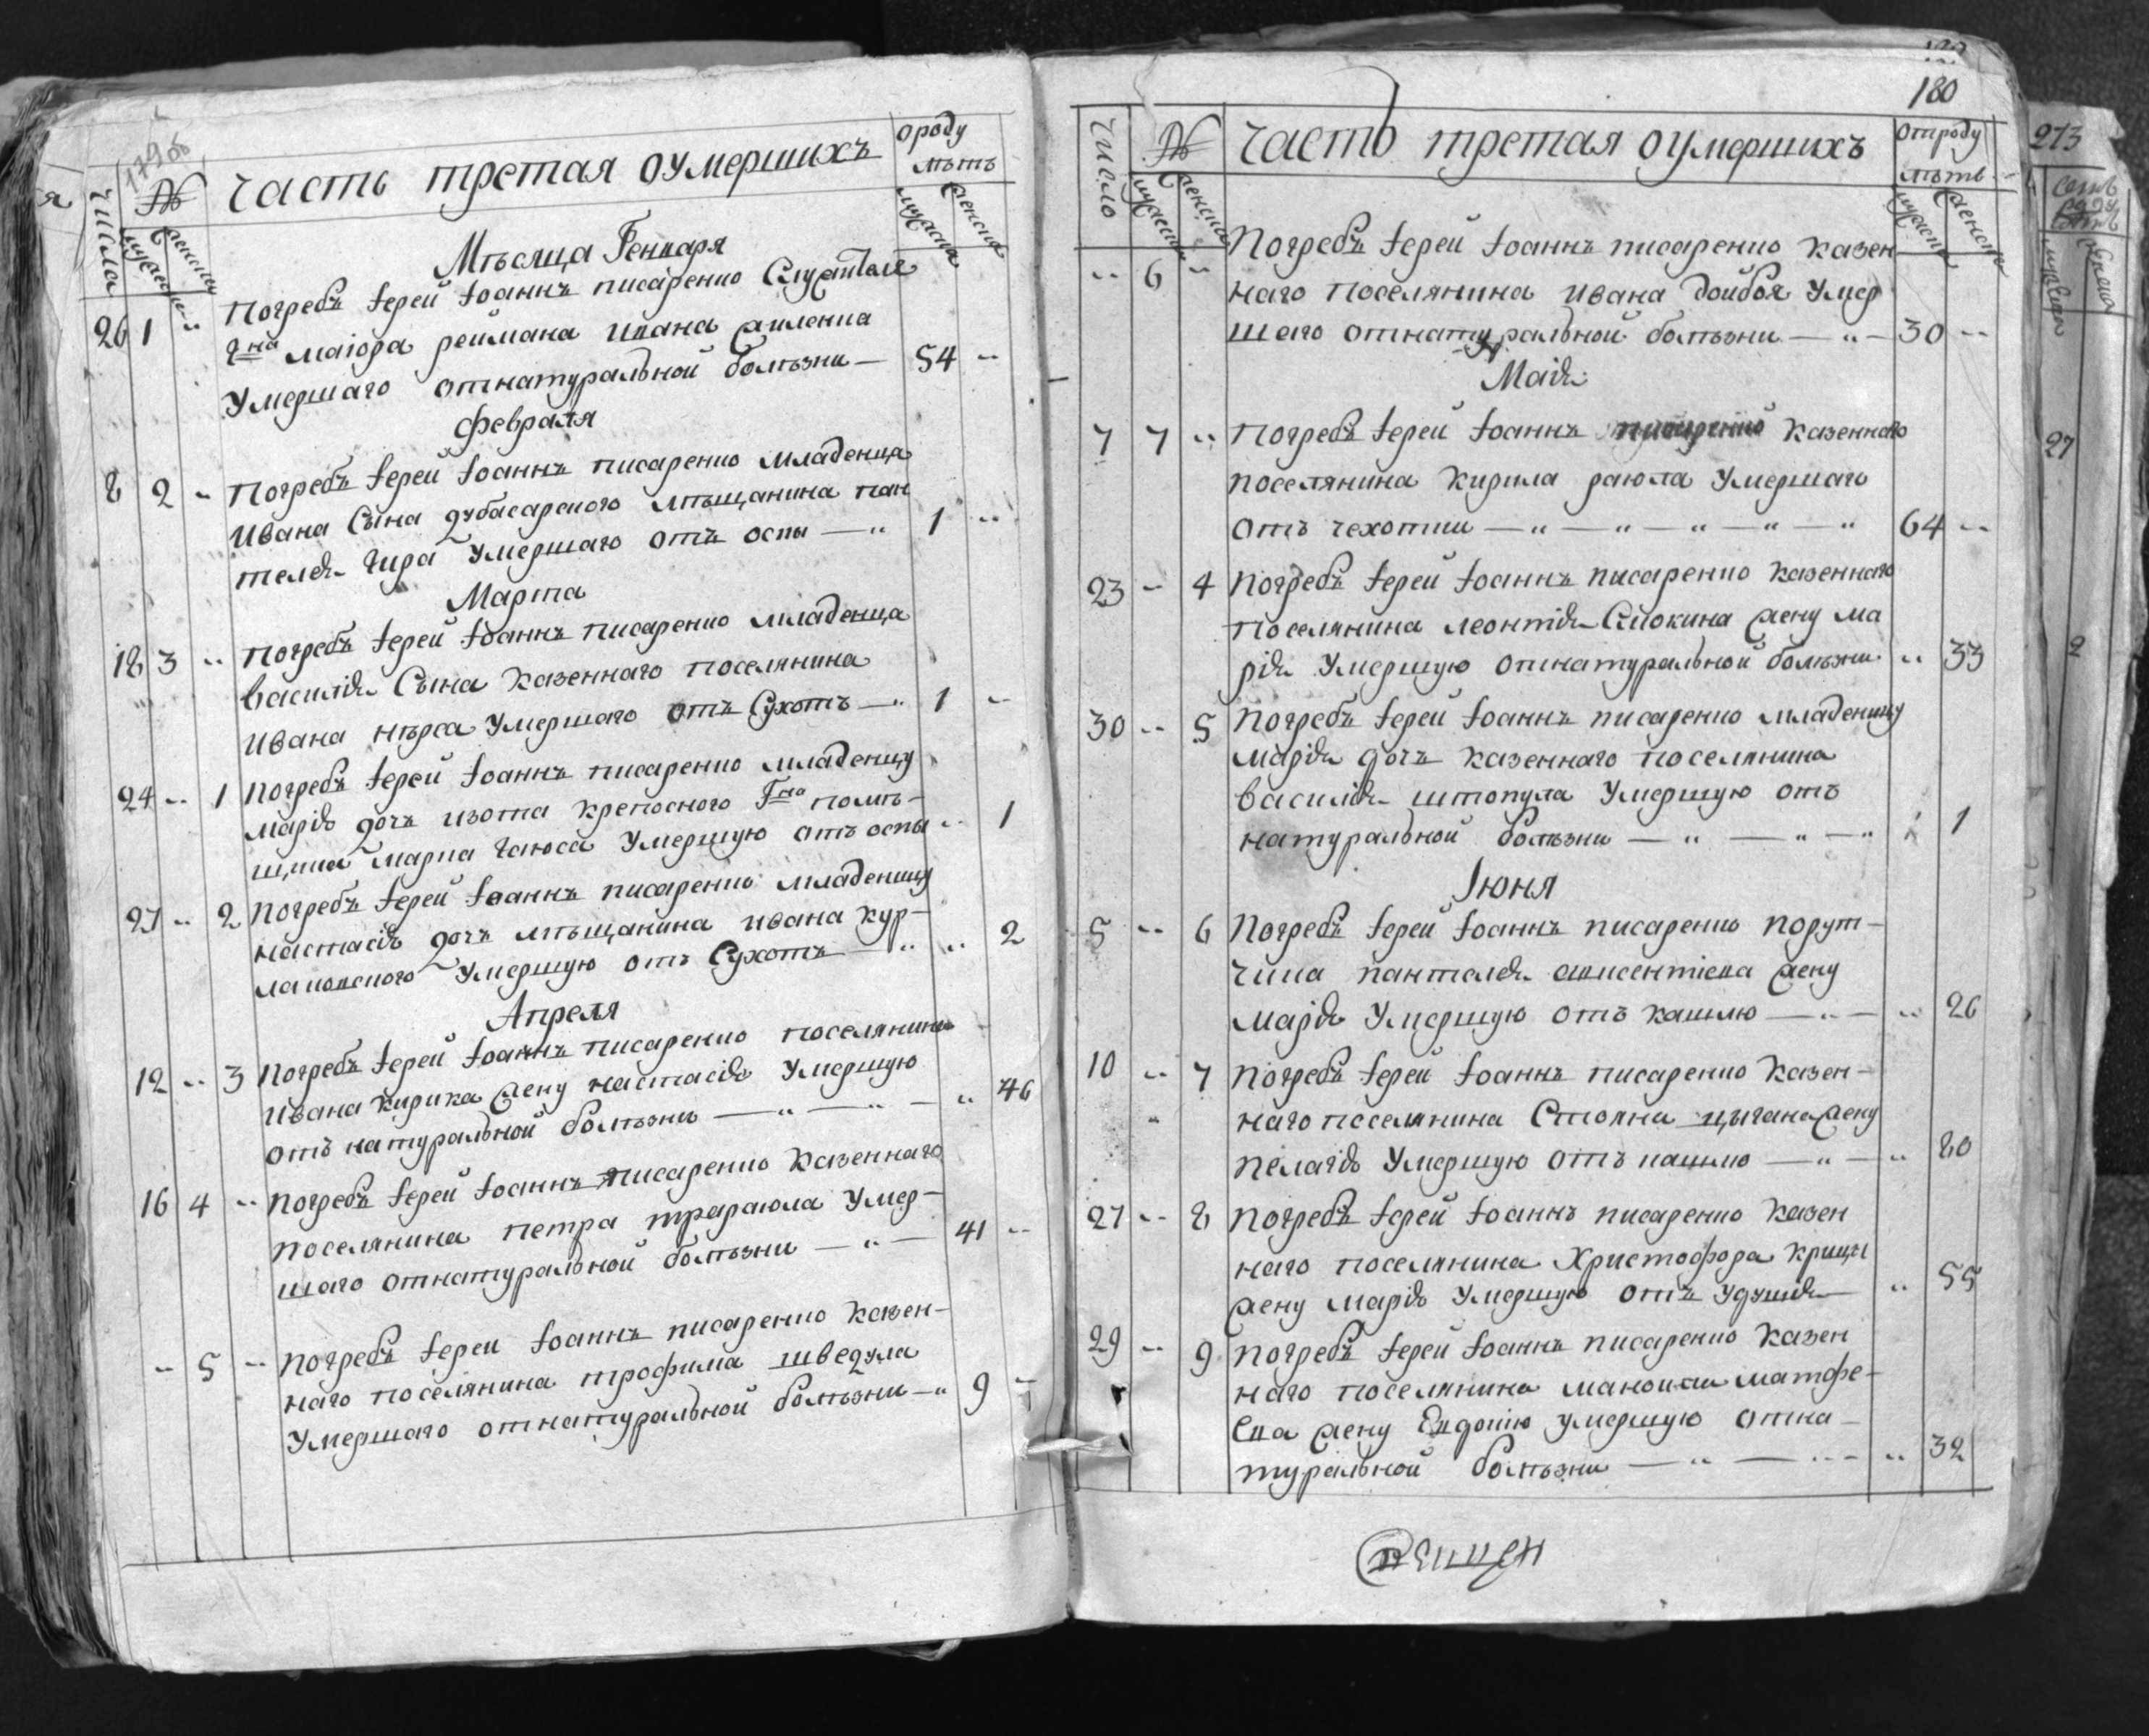 179 об
Числа
№
мужеска
женска
Часть третая оумершихъ
ороду
лѣтъ
мужеска
женска
Мѣсяца Генваря
26 1 " Погребъ Іерей Іоаннъ писаренко Служителя
маіора реймана ивана
Умершаго отнатуральной болѣзни — 54 "
Февраля
8 2 " Погребъ Іерей Іоаннъ писаренко младенца
Ивана Сына дубасарского мѣщанина пан
телея Чира Умершаго отъ оспы — " 1 "
Марта
18 3 " Погребъ Іерей Іоаннъ писаренко младенца
василія Сына Казеннаго поселянина
Ивана Умершаго отъ Сухотъ — " 1 "
24 " 1 Погребъ Іерей Іоаннъ писаренко младенцу
марію дочь изота крепосного Гна помѣ-
щика марка Умершую отъ оспы " 1
27 " 2 Погребъ Іерей Іоаннъ писаренко младеницу
настасію дочь мѣщанина ивана кур-
Умершую отъ Сухотъ — " " 2
Апреля
12 " 3 Погребъ Іерей Іоаннъ писаренко поселянина
Ивана Кирика жену настасію Умершую
отъ натуральной болѣзни — " — " — " 46
16 4 " Погребъ Іерей Іоаннъ писаренко Казеннаго
поселянина петра Умер-
шаго отнатуральной болѣзни — " — 41 "
" 5 " Погребъ Іерей Іоаннъ писаренко Казен-
наго поселянина трофима шведула
Умершаго отнатуральной болѣзни — " 9 "
180
Число
№
мужеска
женска
Часть третая оумершихъ
отроду
лѣтъ
мужеска
женска
" 6 " Погребъ Іерей Іоаннъ писаренко Казен
наго поселянина Ивана Умер
шего отнатуральной болѣзни — " — 30 "
Маія
7 7 " Погребъ Іерей Іоаннъ писаренко Казеннаго
поселянина Кирила раюла Умершаго
отъ чехотки — " — " — " — " — " 64 "
23 " 4 Погребъ Іерей Іоаннъ писаренко Казеннаго
поселянина леонтія жену ма
рія Умершую отнатуральной болѣзни " 33
30 " 5 Погребъ Іерей Іоаннъ писаренко младеницу
марія дочь Казеннаго поселянина
василія штопула Умершую отъ
натуральной болѣзни — " — " — " 1
Іюня
5 " 6 Погребъ Іерей Іоаннъ писаренко порут-
чика пантелея авксентіева жену
марію Умершую отъ кашлю — " — " 26
10 " 7 Погребъ Іерей Іоаннъ писаренко Казен-
наго поселянина Стояна цыгана жену
пелагію Умершую отъ кашлю — " — " 80
27 " 8 Погребъ Іерей Іоаннъ писаренко Казен
наго поселянина Христофора крицы
жену марію Умершую отъ удушія — " 55
29 " 9 Погребъ Іерей Іоаннъ писаренко Казен
наго поселянина матфе-
ева жену Евдокію умершую отна-
туральной болѣзни — " — " - " 32
273
27
2